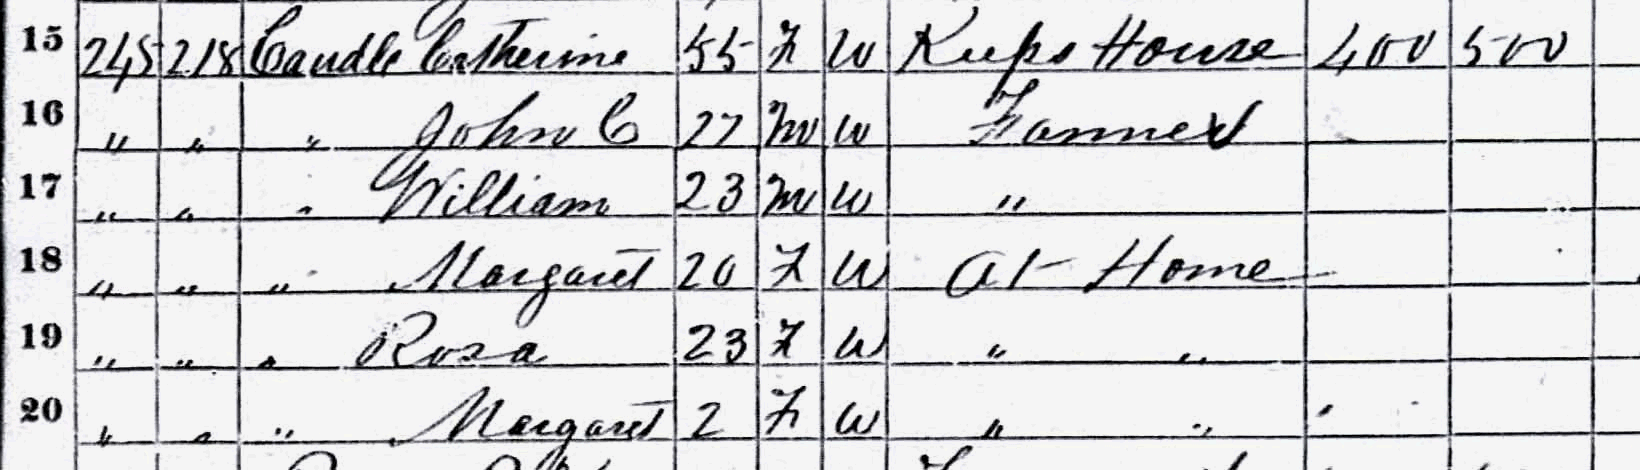 15 245 218 Caudle Catherine 55 F W Keeps House 400 500
16 " " " John C 27 M W Farmer
17 " " " William 23 M W "
18 " " " Margaret 20 F W At Home
19 " " " Rosa 23 F W " "
20 " " " Margaret 2 F W " "